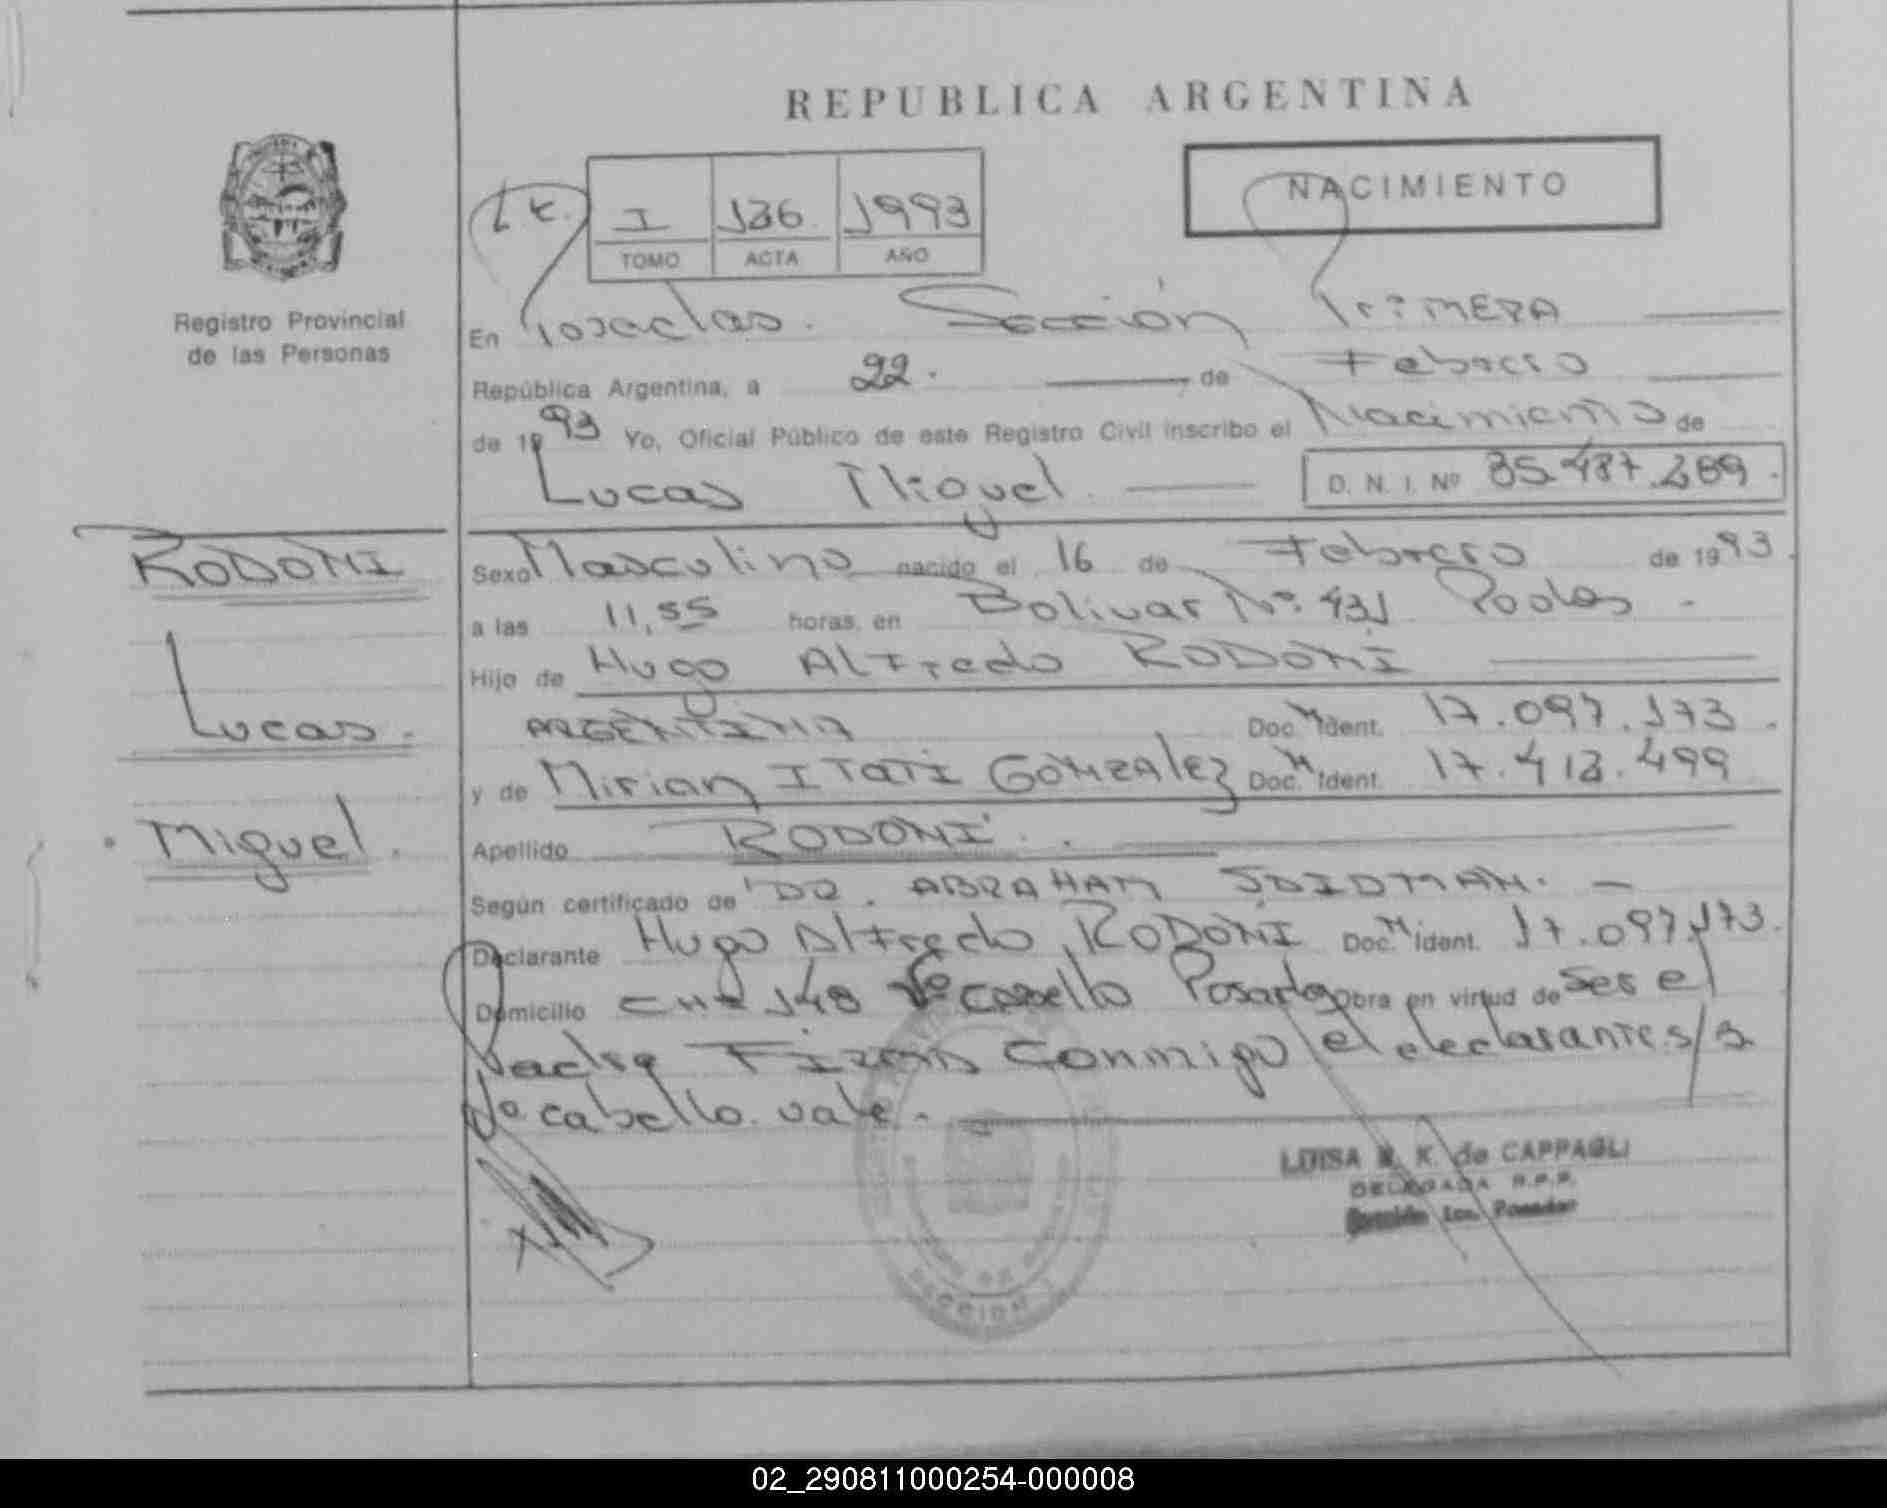 REPUBLICA ARGENTINA
NACIMIENTO
I 136 1993
TOMO ACTA AÑO
Registro Provincial
de las Personas
En Posadas. Sección Primera
República Argentina, a 22. de Febrero
de 1993 Yo, Oficial Público de este Registro Civil inscribo el Nacimiento de
Lucas Miguel D. N. I. Nº
RODONI
Lucas.
Miguel.
Sexo Masculino nacido el 16 de Febrero de 1993.
a las 11,55 horas, en Bolivar Nº 431 Pdas -
Hijo de Hugo Alfredo RODONI
ARGENTINA Doc. M Ident. 17.097.173.
y de Mirian ITATI GONZALEZ Doc. M Ident. 17.412.499
Apellido RODONI.
Según certificado de DR. ABRAHAM
Declarante Hugo Alfredo RODONI Doc. M Ident. 17.097.173.
Domicilio CH 148 Vº cabello Posadas Obra en virtud de ser el
Padre Firma Conmigo el declarante s/r
Vº cabello. vale.
LUISA K. de CAPPAGLI
DELEGADA R.P.P.
Sección 1ra. Posadas
SECCION 1
02_290811000254-000008